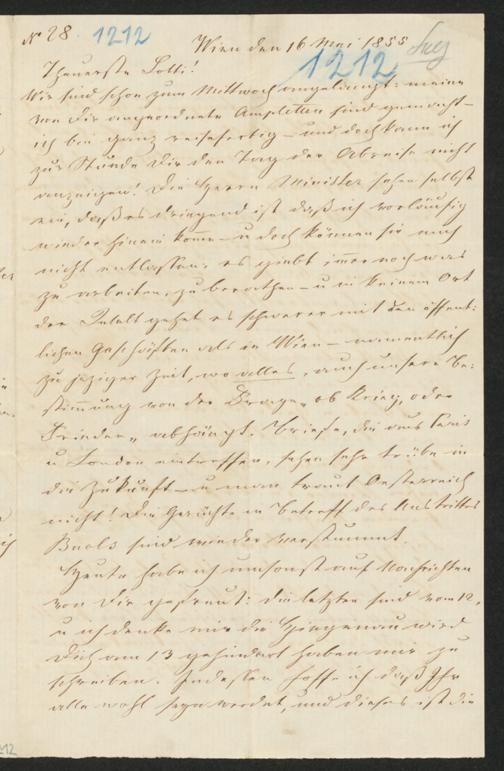 Nr 28. 1212
Wien den 16 Mai 1855
1212
Theuerste Lotti!
Wir sind schon zum Mittwoch angelangt: meine
von Dir angeordnete Ampletten sind gemacht –
ich bin ganz reisefertig – und doch kann ich
zur Stunde Dir den Tag der Abreise nicht
anzeigen! Die Herrn Minister sehen selbst
ein, daß es dringend ist daß ich vorläufig
wieder hinein komme – u doch können sie mich
nicht entlassen. es giebt immer noch was
zu arbeiten, zu berathen – u in keinem Ort
der Welt gehet es schwerer mit den öffent:
lichen Geschäften als in Wien – namentlich
zu jeziger Zeit, wo alles, auch unsere Be:
stimmung von der Frage „ob Krieg, oder
Frieden„ abhängt. Briefe, die aus Paris
u London eintreffen, sehen sehr trübe in
die Zukunft – u man traut Oesterreich
nicht! Die Gerüchte in Betreff des Austrittes
Buols sind wieder verstummt.
Heute habe ich umsonst auf Nachrichten
von Dir gefreut: die letzten sind vom 12,
u ich denke mir die wird
Dich am 13 gehindert haben mir zu
schreiben. Indessen hoffe ich daß Ihr
alle wohl seyn werdet, und dieses ist die